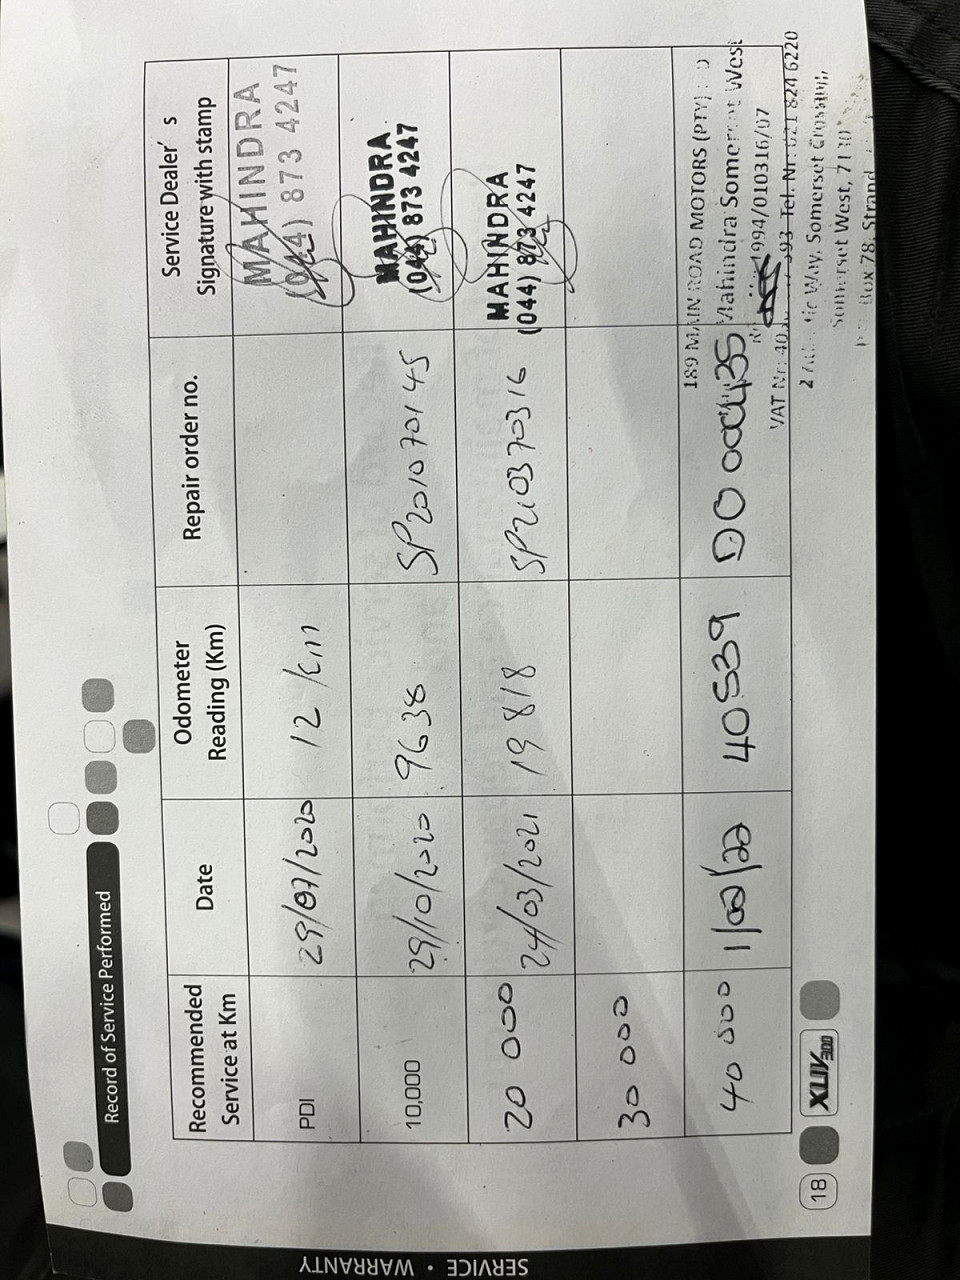 SERVICE • WARRANTY
Record of Service Performed
Recommended Service at Km
Date
Odometer Reading (Km)
Repair order no.
Service Dealer's Signature with stamp
PDI
29/07/2020
12 km
MAHINDRA
(044) 873 4247
10,000
29/10/2020
9638
SP201070145
MAHINDRA
(044) 873 4247
20 000
24/03/2021
19 818
MAHINDRA
(044) 873 4247
30 000
40 000
40539
189 MAIN ROAD MOTORS (PTY)
Mahindra Somerset West
994/010316/07
VAT Nr: 40 Tel. Nr: 021 824 6220
Way, Somerset Crossing,
Somerset West, 7130
Box 78, Strand
18
XUV300